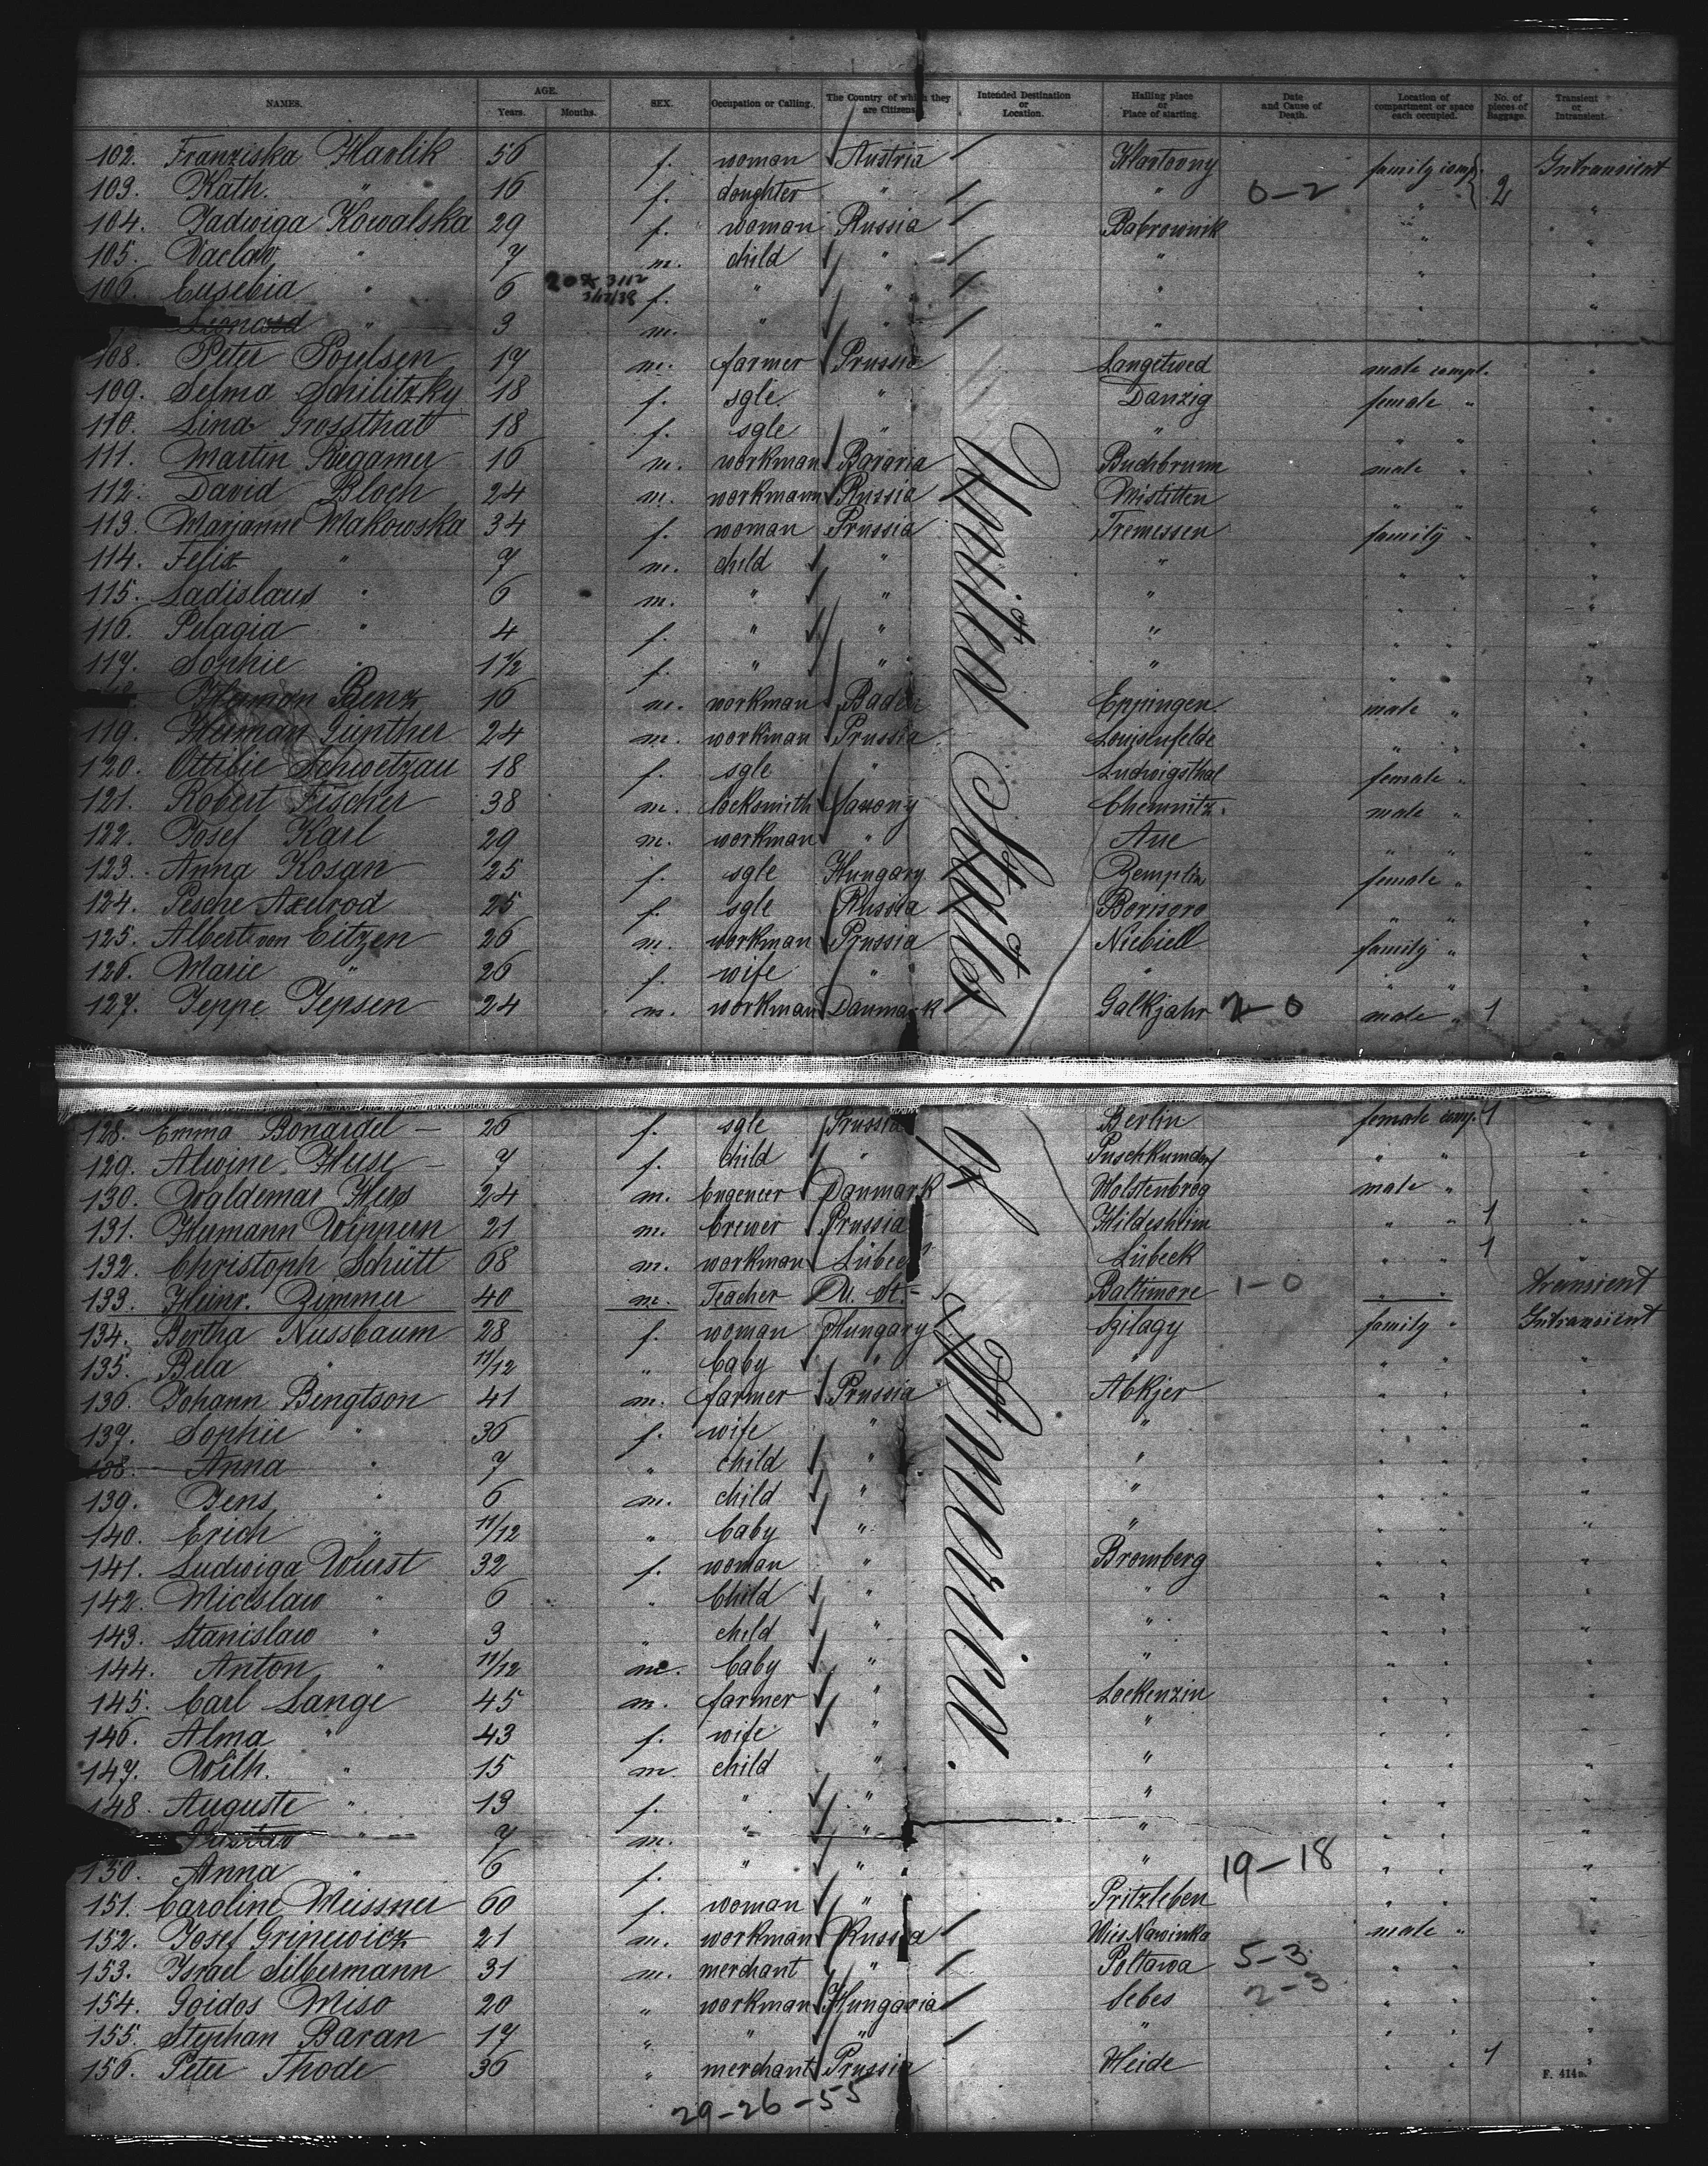 NAMES. AGE. Years. Months. SEX. Occupation or Calling. The Country of which they are Citizens. Intended Destination or Location. Hailing place or Place of starting. Date and Cause of Death. Location of compartment or space each occupied. No. of pieces of Baggage. Transient or Intransient.
102. Franziska Havlik 56 f. woman Austria family comp. Intransient
103. Kath. " 16 f. doughter " " 0-2 " 2 "
104. Jadwiga Kowalska 29 f. woman Russia Babrownik " "
105. Vaclaw " 7 m. child " " " "
106. Eusebia " 6 f. " " " " "
Leonard " 3 m. " " " "
108. Peter Poulsen 17 m. farmer Prussia male compt. "
109. Selma 18 f. sgle " Danzig female " "
110. Lina Grossthat 18 f. sgle " " " " "
111. Martin 16 m. workman Bavaria Buchbrunn male " "
112. David Bloch 24 m. workmann Russia Wistitten " " "
113. Marjanne Makowska 34 f. woman Prussia Tremessen family " "
114. Felix " 7 m. child " " " " "
115. Ladislaus " 6 m. " " " " " "
116. Pelagia " 4 f. " " " " " "
117. Sophie " 1 1/2 f. " " " " " "
Herman Benz 16 m. workman Baden Eppingen male " "
119. Herman Günther 24 m. workman Prussia Louisenfelde " " "
120. Ottilie Schwetzau 18 f. sgle " Ludwigsthal female " "
121. Robert Fischer 38 m. locksmith Saxony Chemnitz. male " "
122. Josef Karl 29 m. workman " Aue " " "
123. Anna Kosan 25 f. sgle Hungary Zemplin female " "
124. Pesche Axelrod 25 f. sgle Russia Borisoro " " "
125. Albert von Eitzen 26 m. workman Prussia Niebiell family " "
126. Marie " 26 f. wife " " " " "
127. Jeppe Jepsen 24 m. workman Danmark Galkjahr 2-0 male " 1 "
United States of America.
128. Emma Bonardel 26 f. sgle Prussia Berlin female comp. 1 "
129. Alwine Huse 7 f. child " " " "
130. Waldemar 24 m. Engeneer Danmark Holstenbrog male " "
131. Hermann Wippern 21 m. brewer Prussia Hildesheim " " 1 "
132. Christoph Schütt 68 m. workman Lübeck Lübeck " " 1 "
133. Heinr. Zimmer 40 m. Teacher U. St. Baltimore 1-0 " " transient
134. Bertha Nussbaum 28 f. woman Hungary Szilagy family " Intransient
135. Bela " 11/12 " baby " " " " "
136. Johann Bengtson 41 m. farmer Prussia Abkjer " " "
137. Sophie " 36 f. wife " " " " "
138. Anna " 7 " child " " " " "
139. Jens " 6 m. child " " " " "
140. Erich " 11/12 " baby " " " " "
141. Ludwiga Wurst 32 f. woman " Bromberg " " "
142. Miceslaw " 6 " Child " " " " "
143. Stanislaw " 3 " child " " " " "
144. Anton " 11/12 m. baby " " " " "
145. Carl Lange 45 m. farmer " Lockenzin " " "
146. Alma " 43 f. wife " " " " "
147. Wilh. " 15 m. child " " " " "
148. Auguste " 13 f. " " " " " "
Gustav " 7 m. " " " " " "
150. Anna " 6 f. " " " 19-18 " " "
151. Caroline Meissner 60 f. woman " Pritzleben " " "
152. Josef Grinewicz 21 m. workman Russia Wies Nawinka male " "
153. Israel Silbermann 31 m. merchant " Poltawa 5-3 " " "
154. Goidos Miso 20 " workman Hungaria Sebes 2-3 " " "
155. Stephan Baran 17 " " " " " " "
156. Peter Thode 36 " merchant Prussia Heide " " 1 "
F. 414n.
29-26-55